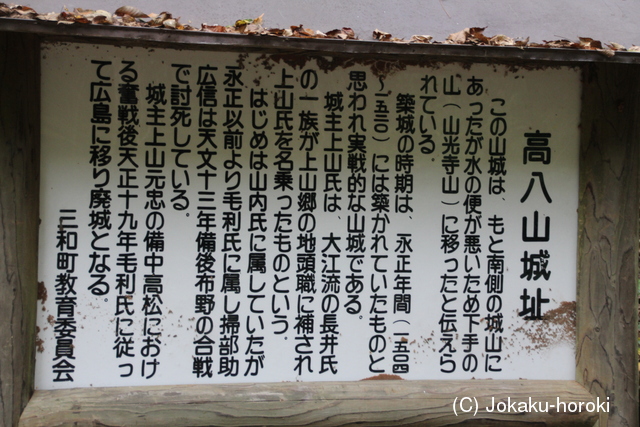 高八山城址
この山城は、もと南側の城山に
あったが水の便が悪いため下手の
山(山光寺山)に移ったと伝えら
れている.
築城の時期は、永正年間(一五〇四
〜一五二〇)には築かれていたものと
思われ実戦的な山城である.
城主上山氏は、大江流の長井氏
の一族が上山郷の地頭職に補され
上山氏を名乗ったものという.
はじめは山内氏に属していたが
永正以前より毛利氏に属し掃部助
広信は天文十三年備後布野の合戦
で討死している.
城主上山元忠の備中高松におけ
る奮戦後天正十九年毛利氏に従っ
て広島に移り廃城となる.
三和町教育委員会
(C) Jokaku-horoki